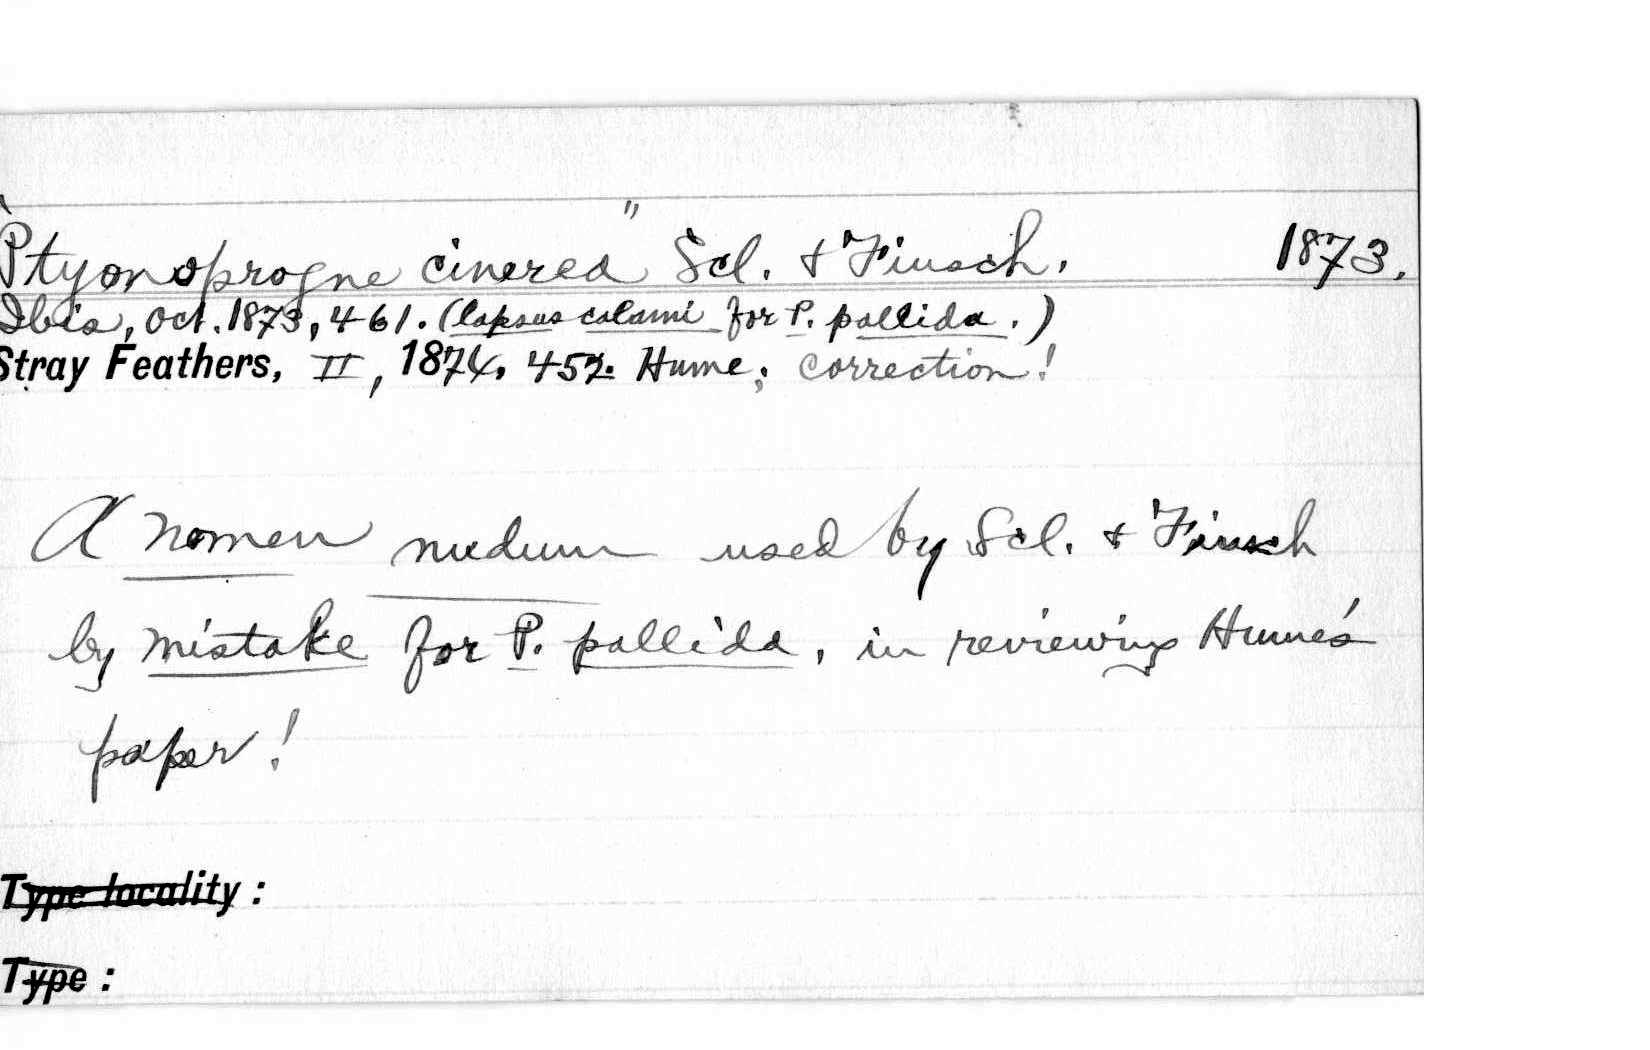 "Ptyonoprogne cinerea" Scl. & Finsch. 1873.
Ibis, Oct. 1873, 461. (lapsus calami for P. pallida.)
Stray Feathers, II, 1874, 452. Hume; correction!
A nomen nudum used by Scl. & Finsch
by mistake for P. pallida, in reviewing Hume's
paper!
Type locality:
Type: